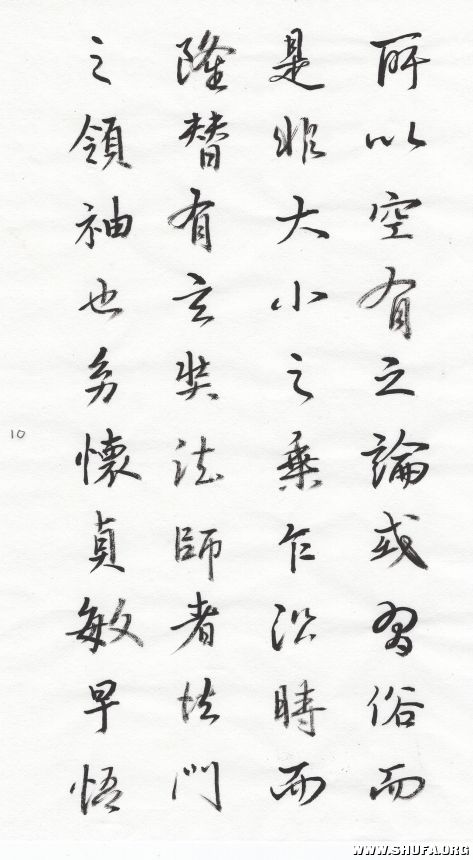 所以空有之論或習俗而
是非大小之乘乍沿時而
隆替有玄奘法師者法門
之領袖也幼懷貞敏早悟
10
WWW.SHUFA.ORG